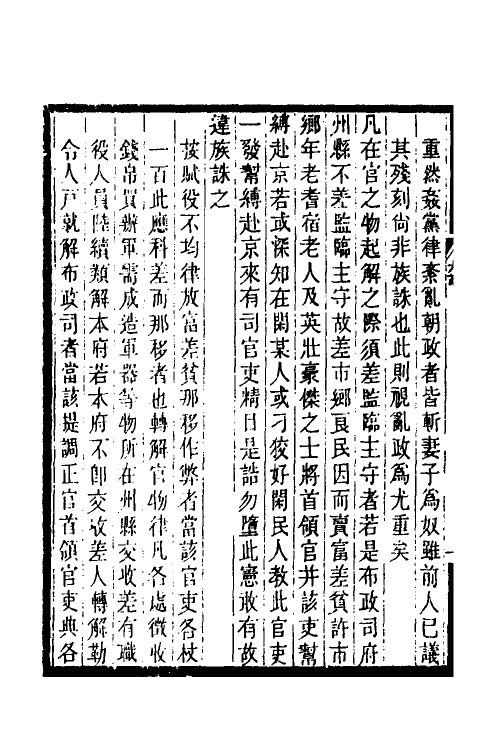 重然姦黨律紊亂朝政者皆斬妻子為奴雖前人已議
其殘刻尙非族誅也此則視亂政爲尤重矣
凡在官之物起解之際須差監臨主守者若是布政司府
州縣不差監臨主守故差市鄉良民因而賣富差貧許市
鄉年老耆宿老人及英壯豪傑之士將首領官幷該吏幫
縛赴京若或深知在閑某人或刁狡好閑民人教此官吏
一發幫縛赴京來有司官吏精目是誥勿墮此憲敢有故
違族誅之
按賦役不均律放富差貧那移作弊者當該官吏各杖
一百此應科差而那移者也轉解官物律凡各處徵收
錢帛買辦軍需成造軍器等物所在州縣交收差有職
役人員陸續類解本府若本府不卽交收差人轉解勒
令人戶就解布政司者當該提調正官首領官吏典各